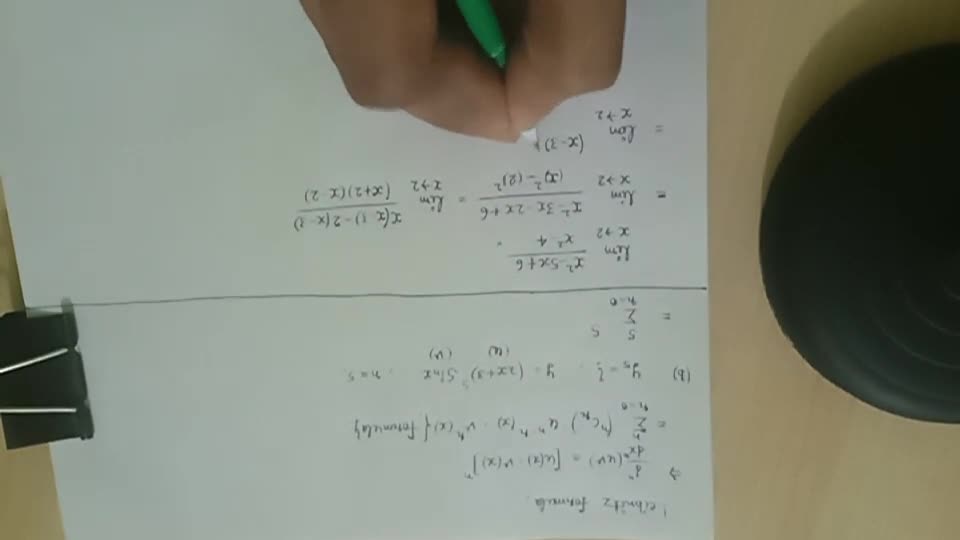 Leibnitz formula.
⇒ dⁿ/dxⁿ (uv) = [u(x) · v(x)]ⁿ
= Σ_{r=0}^{n} (ⁿCᵣ) uⁿ⁻ʳ(x) · vʳ(x) {formula}
(b) y₅ = ? , y = (2x+3)⁵ Sinx , n = 5
(u) (v)
= Σ_{r=0}^{5} 5
lim_{x→2} (x²-5x+6)/(x²-4) =
= lim_{x→2} (x²-3x-2x+6)/((x)²-(2)²) = lim_{x→2} (x(x-3)-2(x-3))/((x+2)(x-2))
= lim_{x→2} (x-3)